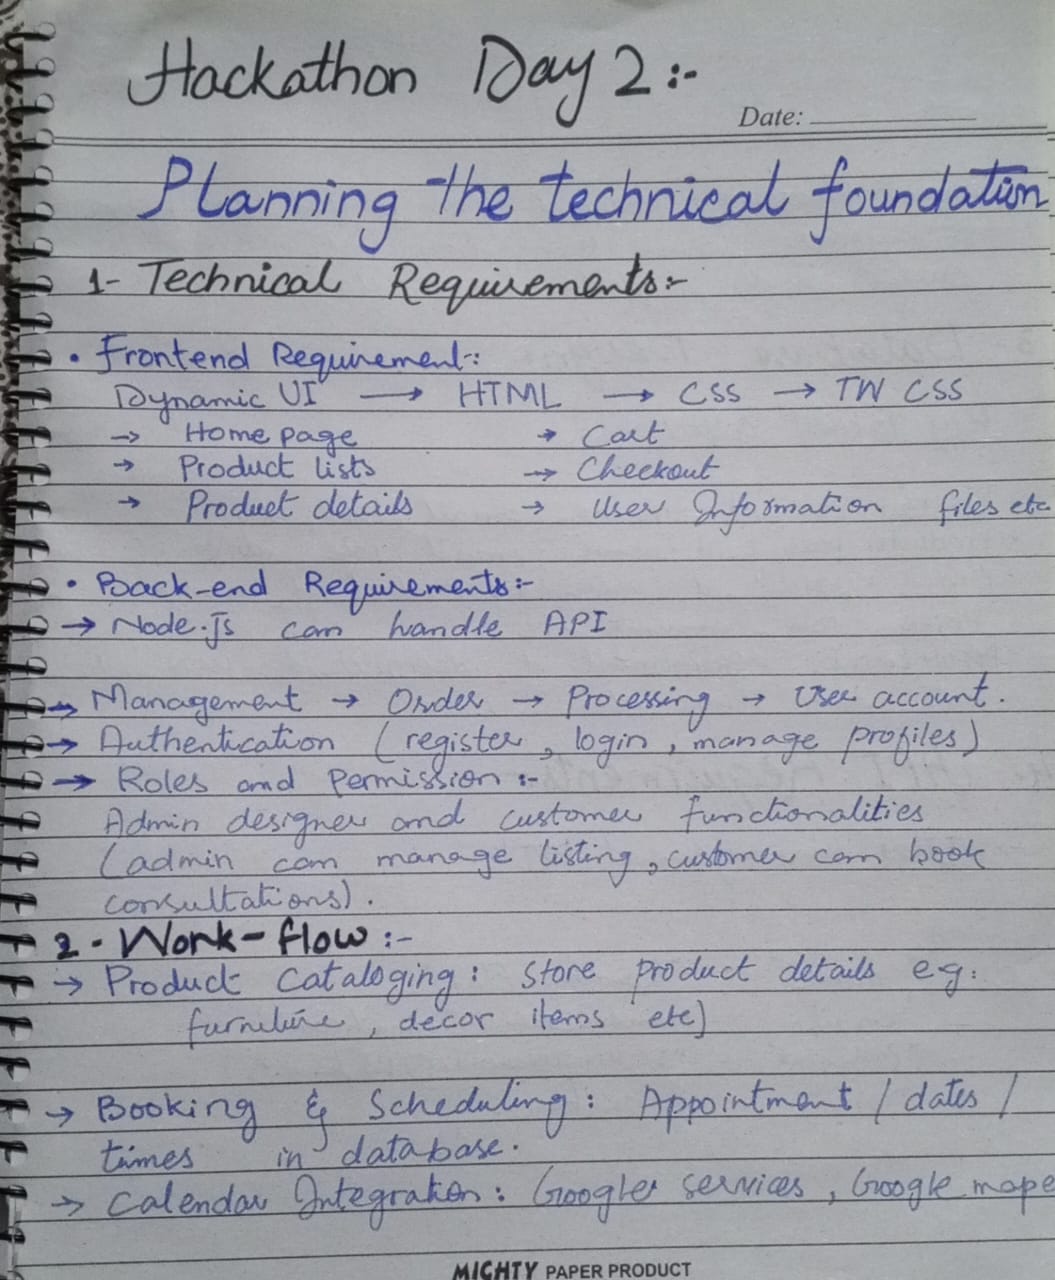 Hackathon Day 2:-
Date:
Planning the technical foundation
1- Technical Requirements:-
• Frontend Requirement:
Dynamic UI → HTML → CSS → TW CSS
→ Home page → Cart
→ Product lists → Checkout
→ Product details → User Information files etc
• Back-end Requirements:-
→ Node.js can handle API
→ Management → Order → Processing → User account.
→ Authentication (register, login, manage profiles)
→ Roles and permission:-
Admin designer and customer functionalities
(admin can manage listing, customer can book
consultations).
2. Work-flow:-
→ Product Cataloging: Store product details eg:
furniture, decor items etc)
→ Booking & Scheduling: Appointment / dates /
times in database.
→ Calendar Integration: Google services, Google mape
MIGHTY PAPER PRODUCT